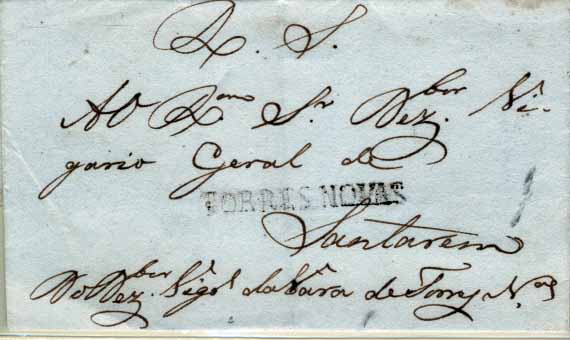 R. S.
Ao Rmo Sr Dezbor Vi-
gario Geral de
TORRES NOVAS
Santarem
Do Dezbor Vigro da Vara de Torres Nas